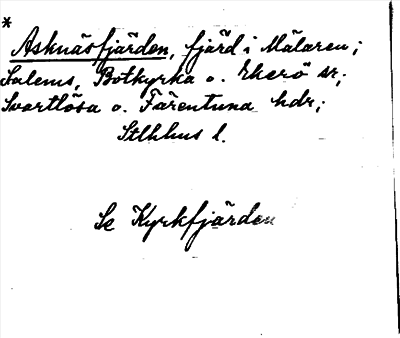 *
Asknäsfjärden, fjärd i Mälaren;
Salems, Botkyrka o. Ekerö sr;
Svartlösa o. Färentuna hdr;
Sthlms l.
Se Kyrkfjärden